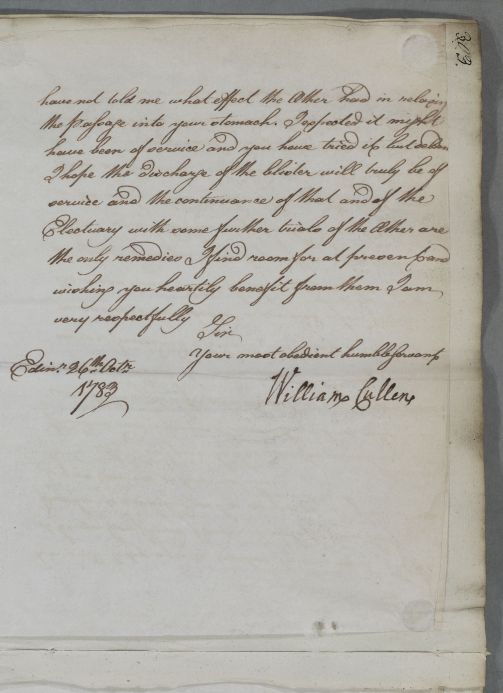 have not told me what effect the Æther had in relaxing
the passage into your stomach. I expected it might
have been of service and you have tried it but seldom
I hope the discharge of the blister will truly be of
service and the continuance of that and of the
Electuary with some further trials of the Æther are
the only remedies I find room for at present and
wishing you heartily benefit from them I am
very respectfully
Sir
Your most obedient humble servant
Edinr. 26th. Octr.
1783
William Cullen